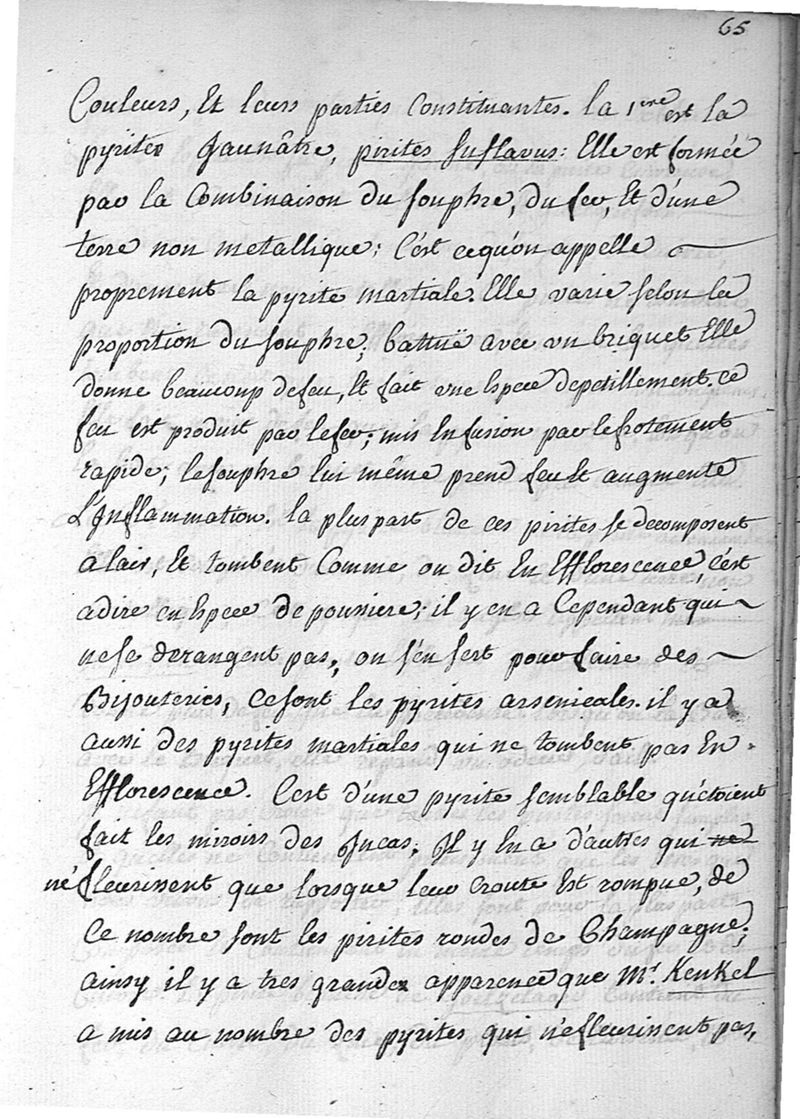 65
Couleurs, Et leurs parties Constituantes. la 1ere est la
pyrites Jaunâtre, pirites suflavus: Elle est formée
par la Combinaison du souphre, du fer, Et d'une
terre non metallique; C'est cequ'on appelle
proprement la pyrite martiale. Elle varie selon la
proportion du souphre; battuë avec un briquet Elle
donne beaucoup defeu, Et fait une Espece depetillement. ce
feu est produit par lefer; mis En fusion par lefrotement
rapide; lesouphre lui même prend feu Et augmente
L'Inflammation. la pluspart de ces pirites se decomposent
alair, Et tombent Comme on dit En Efflorescence, c'est
adire en Espece de poussiere; il y en a Cependant qui
nese derangent pas, on s'en sert pour faire des
Bijouteries, Cesont les pyrites arsenicales. il y a
aussi des pyrites martiales qui ne tombent pas En
Efflorescence. C'est d'une pyrite semblable qu'étoient
fait les miroirs des Incas. Il y En a d'autres qui ne
né fleurissent que lorsque leur croute Est rompue, de
Ce nombre sont les pirites rondes de Champagne;
ainsy il y a tres grande apparence que Mr. Kenkel
a mis au nombre des pyrites qui n'efleurissent pas,